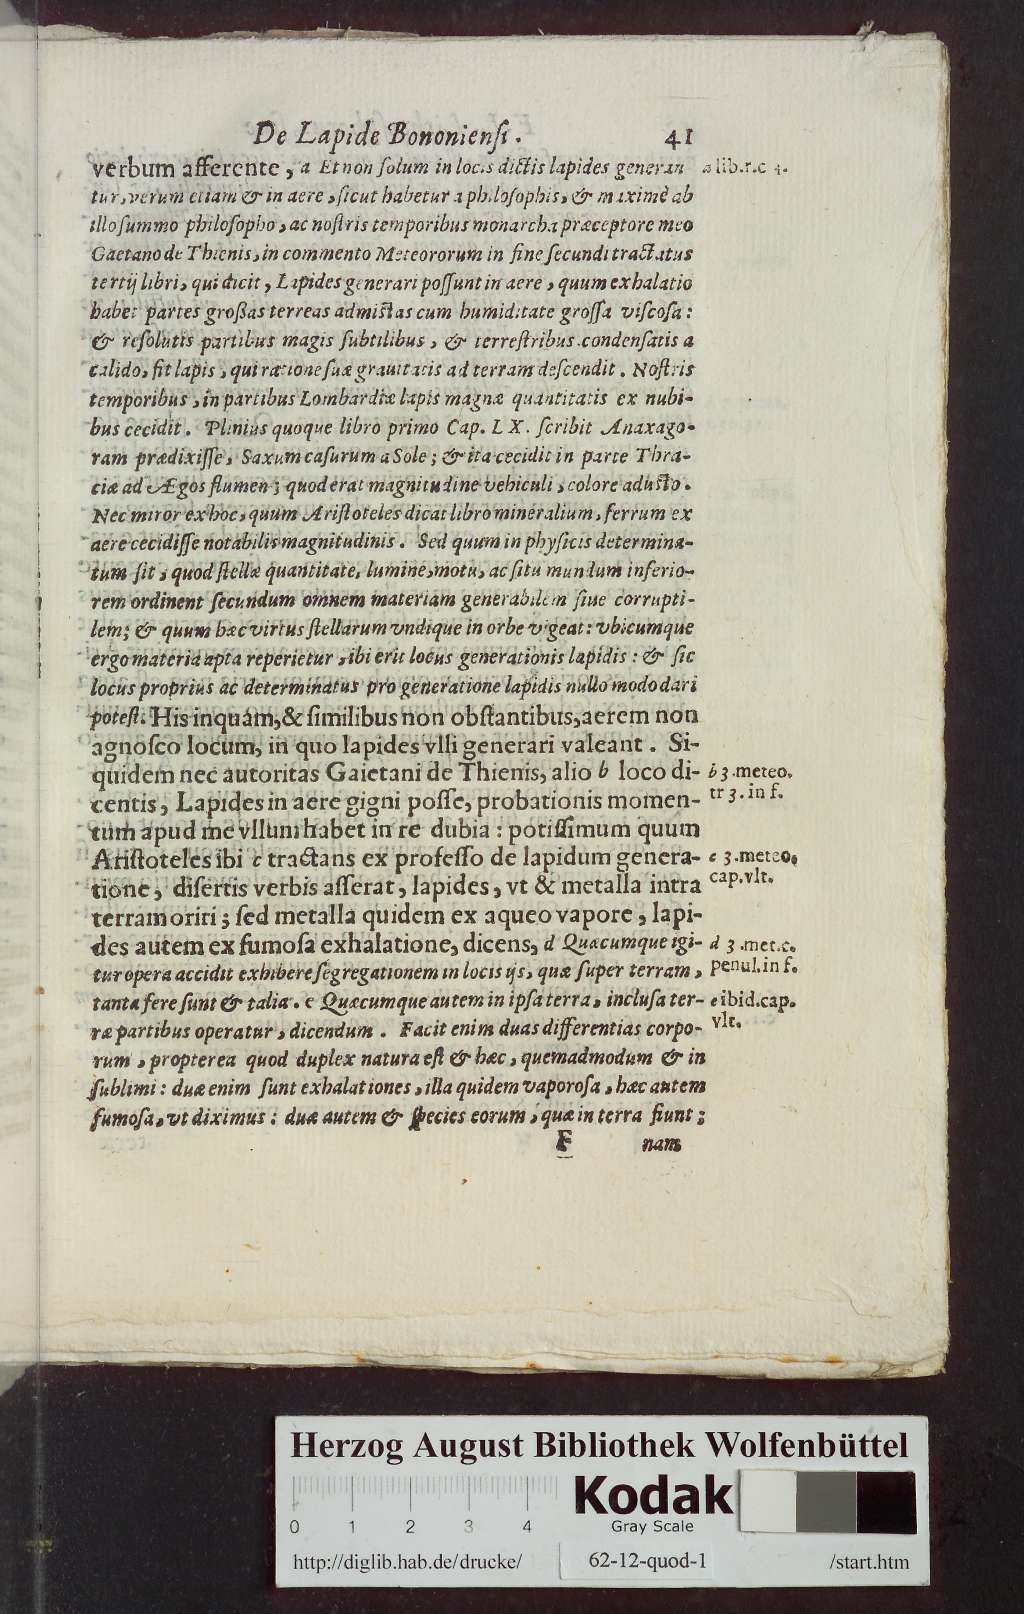 De Lapide Bononienſi. 41
verbum afferente, a Et non ſolum in locis dictis lapides generan a lib.r.c 4.
tur, verum etiam & in aere, ſicut habetur a philoſophis, & maximè ab
illo ſummo philoſopho, ac noſtris temporibus monarcha præceptore meo
Gaetano de Thienis, in commento Meteororum in fine ſecundi tractatus
tertij libri, qui dicit, Lapides generari poſſunt in aere, quum exhalatio
habet partes großas terreas admiſtas cum humiditate groſſa viſcoſa:
& reſolutis partibus magis ſubtilibus, & terreſtribus condenſatis a
calido, fit lapis, qui ratione ſuæ grauitatis ad terram deſcendit. Noſtris
temporibus, in partibus Lombardiæ lapis magnæ quantitatis ex nubi-
bus cecidit. Plinius quoque libro primo Cap. LX. ſcribit Anaxago-
ram prædixiſſe, Saxum caſurum a Sole; & ita cecidit in parte Thra-
ciæ ad Ægos flumen; quod erat magnitudine vehiculi, colore aduſto.
Nec miror ex hoc, quum Ariſtoteles dicat libro mineralium, ferrum ex
aere cecidiſſe notabilis magnitudinis. Sed quum in phyſicis determina-
tum ſit, quod ſtellæ quantitate, lumine, motu, ac ſitu mundum inferio-
rem ordinent ſecundum omnem materiam generabilem ſiue corrupti-
lem; & quum hæc virtus ſtellarum vndique in orbe vigeat: vbicumque
ergo materia apta reperietur, ibi erit locus generationis lapidis: & ſic
locus proprius ac determinatus pro generatione lapidis nullo modo dari
poteſt. His inquam, & ſimilibus non obſtantibus, aerem non
agnoſco locum, in quo lapides vlli generari valeant. Si-
quidem nec autoritas Gaietani de Thienis, alio b loco di- b 3.meteo.
centis, Lapides in aere gigni poſſe, probationis momen- tr 3. in f.
tum apud me vllum habet in re dubia: potiſſimum quum
Ariſtoteles ibi c tractans ex profeſſo de lapidum genera- c 3.meteo.
tione, diſertis verbis aſſerat, lapides, vt & metalla intra cap.vlt.
terram oriri; ſed metalla quidem ex aqueo vapore, lapi-
des autem ex fumoſa exhalatione, dicens, d Quæcumque igi- d 3.met.c.
tur opera accidit exhibere ſegregationem in locis ijs, quæ ſuper terram, penul.in f.
tanta fere ſunt & talia. e Quæcumque autem in ipſa terra, incluſa ter- e ibid.cap.
ræ partibus operatur, dicendum. Facit enim duas differentias corpo- vlt.
rum, propterea quod duplex natura eſt & hæc, quemadmodum & in
ſublimi: duæ enim ſunt exhalationes, illa quidem vaporoſa, hæc autem
fumoſa, vt diximus: duæ autem & ſpecies eorum, quæ in terra fiunt;
F nam
Herzog August Bibliothek Wolfenbüttel
Kodak
Gray Scale
0 1 2 3 4
http://diglib.hab.de/drucke/ 62-12-quod-1 /start.htm